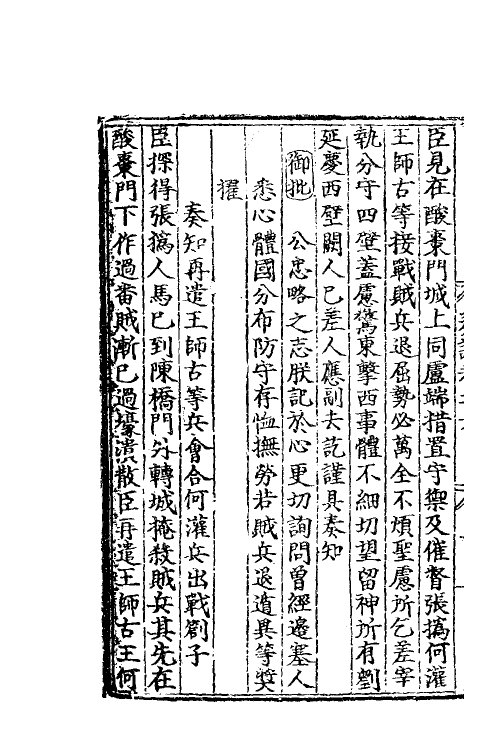 臣見在酸棗門城上同盧端措置守禦及催督張撝何灌
王師古等接戰賊兵退屈勢必萬全不煩聖慮所乞差宰
執分守四壁蓋慮驚東擊西事體不細切望留神所有劉
延慶西壁闕人已差人應副去訖謹具奏知
御批 公忠略之志朕記於心更切詢問曾經邊塞人
悉心體國分布防守存恤撫勞若賊兵退遁異等獎
擢
奏知再遣王師古等兵會合何灌兵出戰劄子
臣探得張撝人馬已到陳橋門外轉城掩殺賊兵其先在
酸棗門下作過番賊漸已過壕潰散臣再遣王師古王何